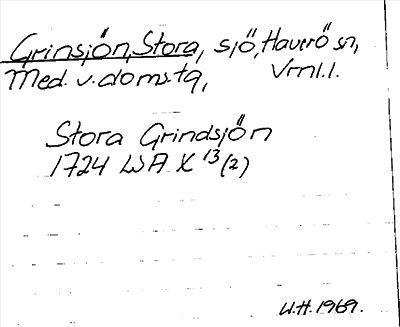 Grinsjön, Stora, sjö, Haverö sn,
Med. v. domstg, Vrml.l.
Stora Grindsjön
1724 LSA X 13 (2)
U.H. 1969.